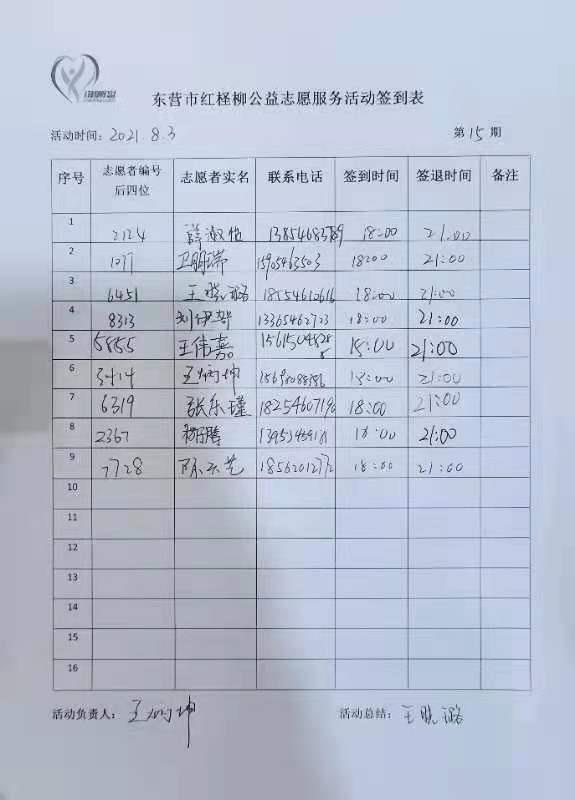 东营市红柽柳公益志愿服务活动签到表
活动时间：2021 8.3 第15期
序号 志愿者编号后四位 志愿者实名 联系电话 签到时间 签退时间 备注
1 2124 薛淑怡 18:00 21:00
2 1077 卫朋瑞 15905463503 18:00 21:00
3 6451 王晓璐 18554610616 18:00 21:00
4 8313 刘伊 13365462723 18:00 21:00
5 5855 王伟嘉 15615048288 15:00 21:00
6 3414 王炳坤 21:00
7 6319 张乐瑾 18254607190 18:00 21:00
8 2367 18:00 21:00
9 7728 陈不艺 18562012772 18:00 21:00
10
11
12
13
14
15
16
活动负责人：王炳坤 活动总结：王晓璐